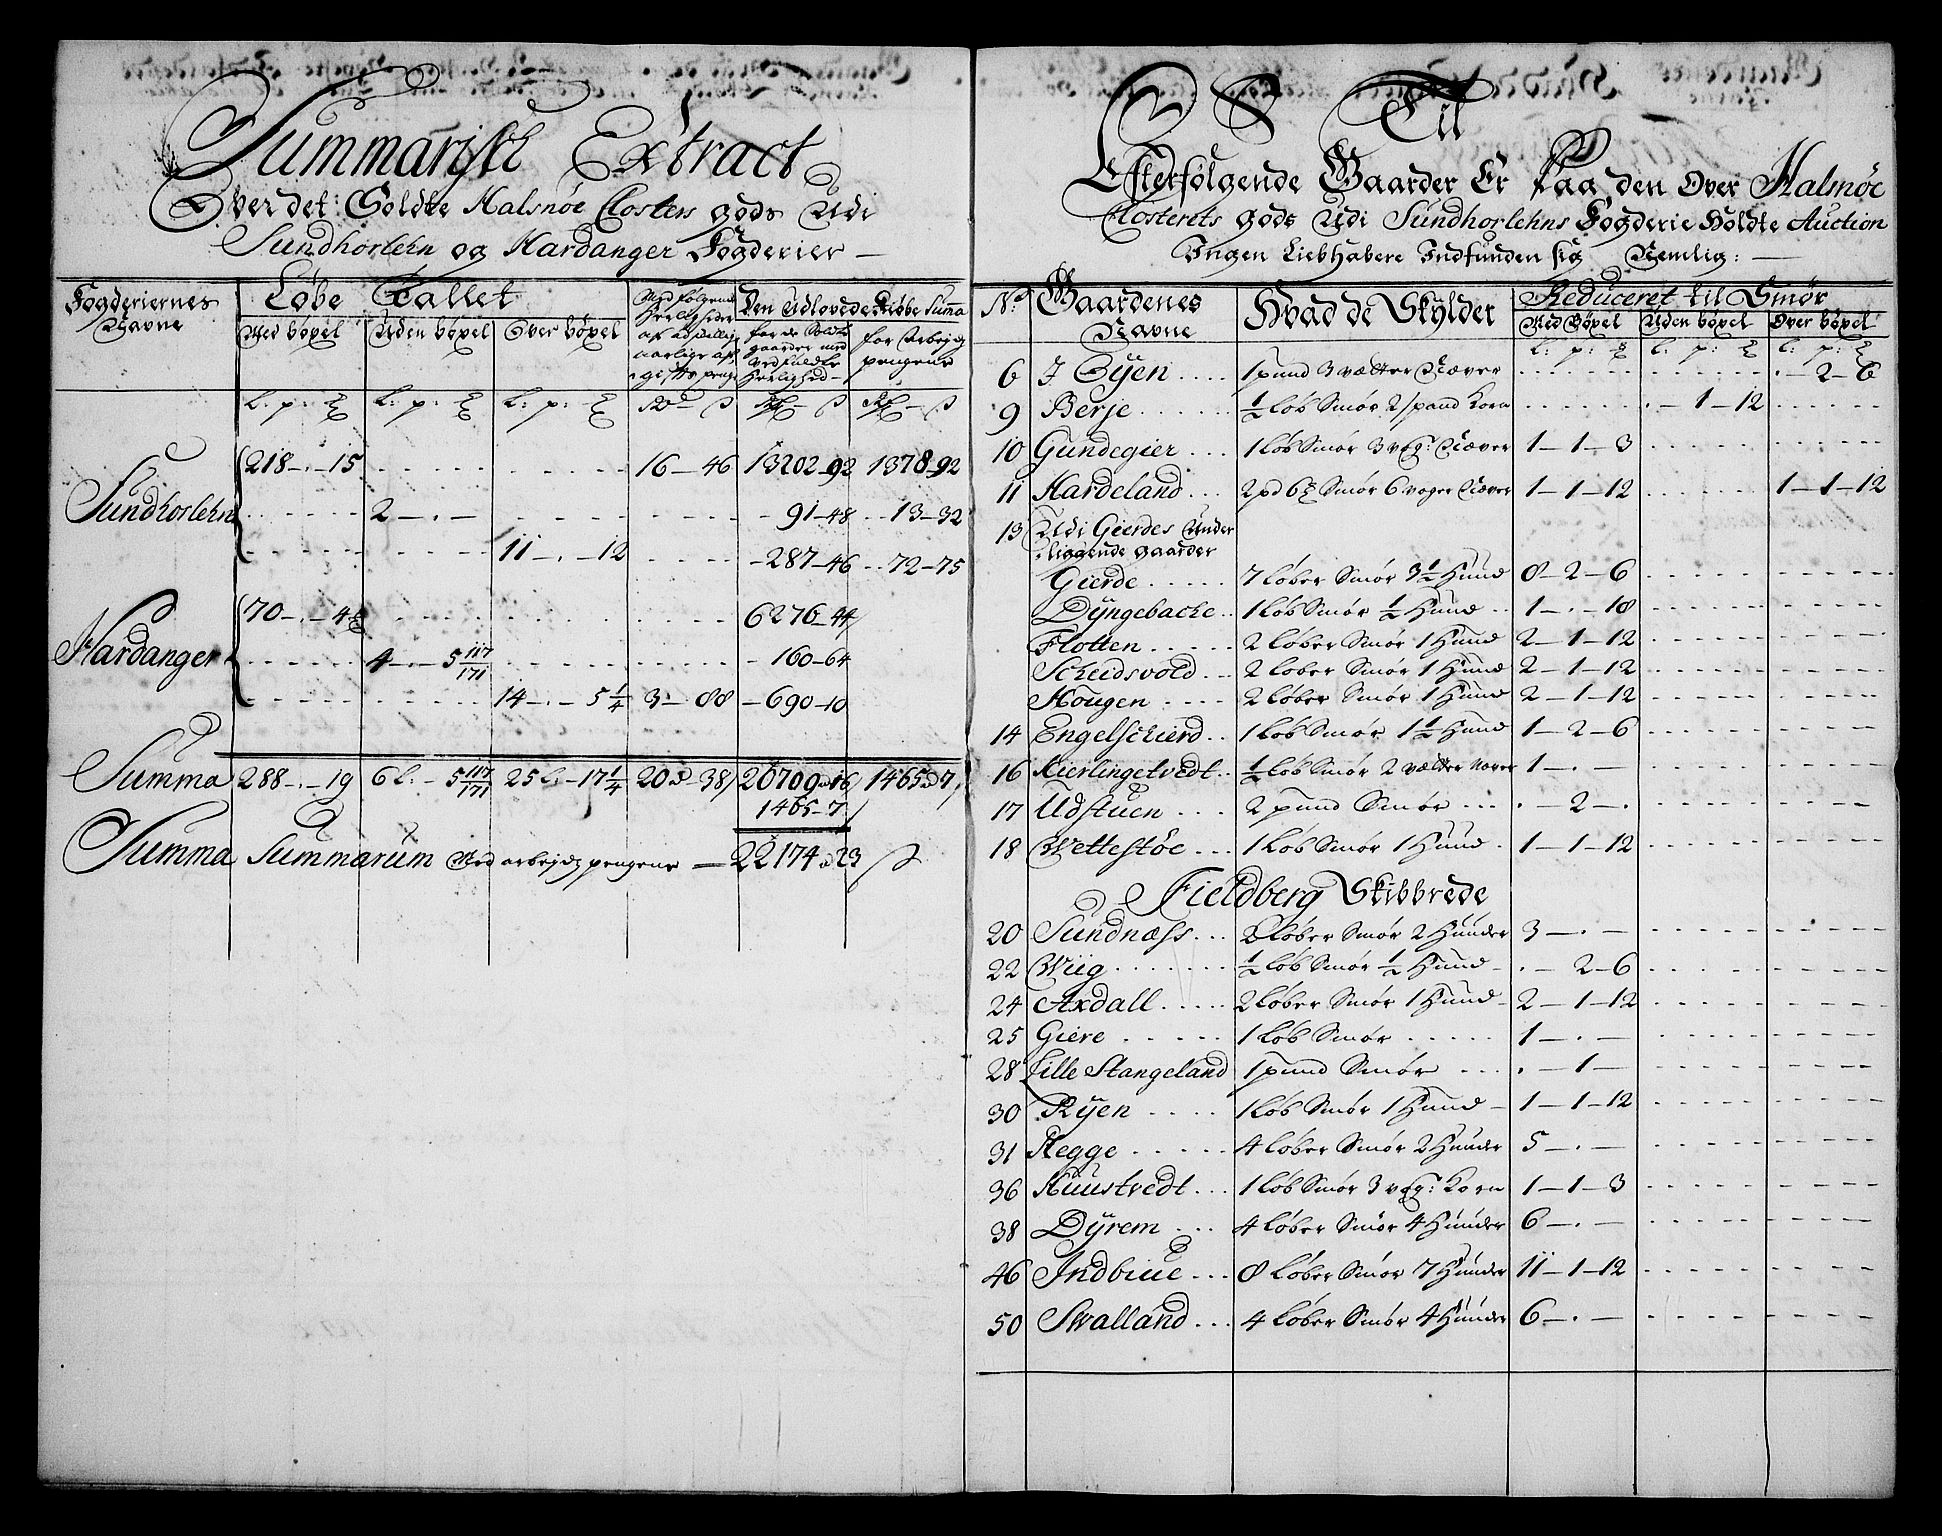 Summarisk Extract
Over det Soldte Halsnöe Closters gods Udi
Sundhorlehn og Hardanger Fogderier —
Fogderiernes Navne | Løbe Tallet | Med følgende Herligheder | Den Udlovede Kiøbe Summa
Med bøxel | Uden bøxel | Over bøxel | for de Soldte gaarder med Herlighed | for Arbejds pengene
L: p: | L: p: | L: p: | Rd — ß | Rd — ß | Rd — ß
Sundhorlehn | 218 — . — 15 | 16 — 46 | 13202 — 92 | 1378 — 92
2 — . — | 91 — 48 | 13 — 32
11 — . — 12 | 287 — 46 | 72 — 75
Hardanger | 70 — . — 4 | 6276 — 44
4 — . — 5 117/171 | 160 — 64
14 — . — 5 1/4 | 3 — 88 | 690 — 10
Summa | 288 — . — 19 | 6 L. — 5 117/171 | 25 L. — 17 1/4 | 20 — 38 | 20709 — 16 | 1465 — 7
1465 — 7
Summa Summarum Med arbejds pengene — 22174 — 23 ß
Til
Efterfølgende Gaarder Er Paa den Over Halsnöe
Closterets gods Udi Sundhorlehns Fogderie Holdte Auction
Ingen Liebhabere Indfunden sig Nemlig: —
No | Gaardenes Navne | Hvad de Skylder | Reduceret til Smør
Med Bøxel | Uden bøxel | Over bøxel
L: p: | L: p: | L: p:
6 | I Øyen | 1 pund 3 vætter Næver | . — 2 — 6
9 | Berje | 1/2 løb Smør 2 spand Korn | . — 1 — 12
10 | Gundegier | 1 Løb Smør 3 Næver | 1 — 1 — 3
11 | Hardeland | 2 pd 6 Smør 6 voger Næver | 1 — 1 — 12 | 1 — 1 — 12
13 | Udi Gierdes Under
liggende gaarder
Gierde | 7 Løber Smør 3 1/2 Hund | 8 — 2 — 6
Dÿngebacke | 1 Løb Smør 1/2 Hund | 1 — . — 18
Flotten | 2 Løber Smør 1 Hund | 2 — 1 — 12
Scheidsvold | 2 Løber Smør 1 Hund | 2 — 1 — 12
Hougen | 2 Løber Smør 1 Hund | 2 — 1 — 12
14 | Engelschierd | 1 Løb Smør 1 1/2 Hund | 1 — 2 — 6
16 | Kierlingetvedt | 1/2 Løb Smør 2 vætter | 1 — . —
17 | Udstuen | 2 pund Smør | . — 2 — .
18 | Wettestöe | 1 Løb Smør 1 Hund | 1 — 1 — 12
Fieldberg Skibbrede
20 | Sundnæss | 2 Løber Smør 2 Hunder | 3 — . —
22 | Wiig | 1/2 Løb Smør 1/2 Hund | . — 2 — 6
24 | Axdall | 2 Løber Smør 1 Hund | 2 — 1 — 12
25 | Giere | 1 Løb Smør | 1 — . —
28 | Lille Stangeland | 1 pund Smør | . — 1 —
30 | Ryen | 1 Løb Smør 1 Hund | 1 — 1 — 12
31 | Hegge | 4 Løber Smør 2 Hunder | 5 — . —
36 | Huustvedt | 1 Løb Smør 3 Korn | 1 — 1 — 3
38 | Dÿrem | 4 Løber Smør 4 Hunder | 6 — . —
46 | Indbiue | 8 Løber Smør 7 Hunder | 11 — 1 — 12
50 | Swalland | 4 Løber Smør 4 Hunder | 6 — . —